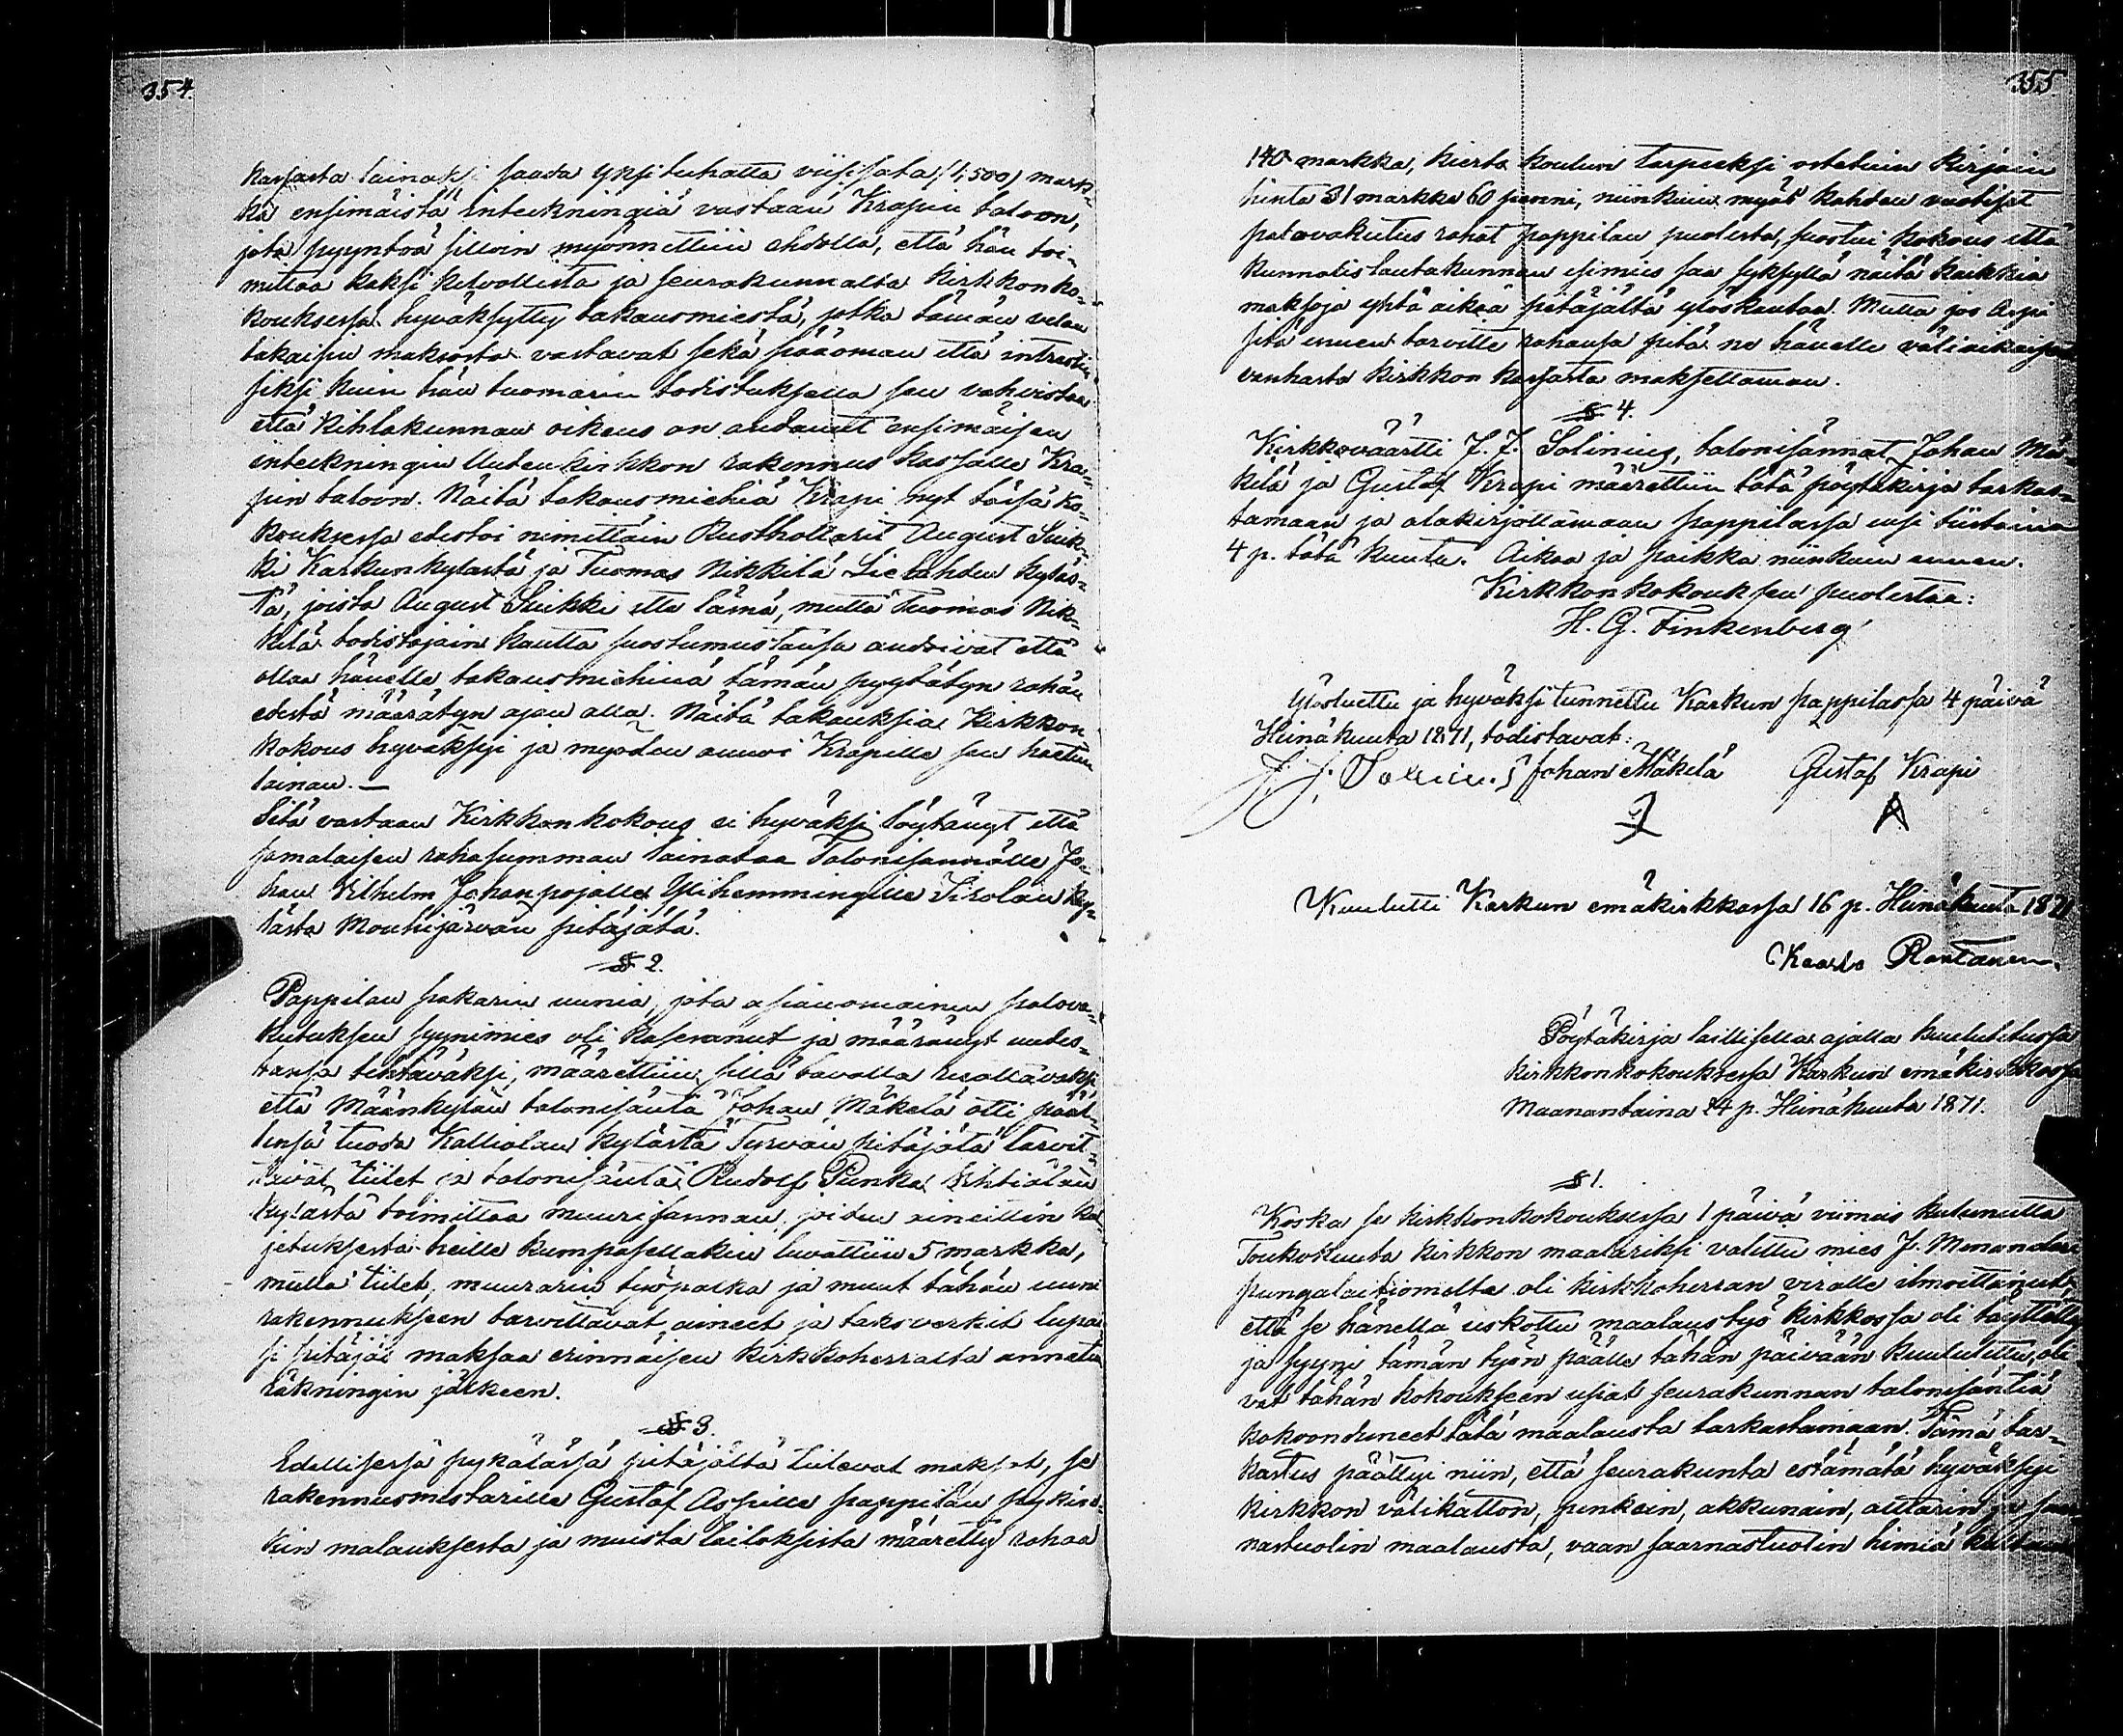 354.
kassasta lainaksi saada yksituhatta viisisataa (1,500) mark-
ka ensimäistä inteckningiä vastaan Krapin taloon,
jota pyyntöä silloin myönnettiin ehdolla, että hän toi-
mittaa kaksi kelvollista ja seurakunnalta kirkkonko-
kouksessa hyväksytty takausmiestä, jotka tämän velan
takaisin maksosta vastavat sekä pääoman että intressin
siksi kuin hän tuomarin todistuksella sen vahvistaa
että Kihlakunnan oikeus on andanut ensimäisen
inteckningin Uuden kirkkon rakennus kassalle Kra-
pin taloon. Näitä takausmiehiä Krapi nyt tässä ko-
kouksessa edestoi nimittäin Rusthollarit August Suik-
ki Karkunkylästä ja Tuomas Nikkilä Lielahden kyläs-
tä, joista August Suikki itte läsnä, mutta Tuomas Nik-
kilä todistajain kautta suostumustansa andoivat että
ollaa hänelle takausmiehinä tämän pyydätyn rahan
edestä määrätyn ajan alla. Näitä takauksia Kirkkon
kokous hyväksyi ja myöden annoi Krapille sen haetun
lainan. —
Sitä vastaan Kirkkonkokous ei hyväksi löytänyt että
samalaisen rahasumman lainataa Talonisännälle Jo-
han Vilhelm Johanpojalle Ylihemmingille Sirolan ky-
lästä Mouhijärvän pitäjätä.
§ 2.
Pappilan pakarin uunia, jota asianomainen palova-
kutuksen syynimies oli kaseeranut ja määränyt uudes-
tansa tehtäväksi, määrettiin sillä tavalla
että Määnkylän talonisäntä Johan Mäkelä otti pääl-
lensä tuoda Kalliolan kylästä Tyrvän pitäjätä tarvit-
tavat tiilet ja talonisäntä Rudolf Punka
kylästä toimittaa muurisannan, joiden aineittin kul-
jetuksesta heille kumpasellakin luvattiin 5 markka,
mutta tiilet, muurarin työpalka ja muut tähän uuni
rakennukseen tarvittavat aineet ja taksverkit lupai
si pitäjäs maksaa erinnäisen kirkkoherralta annetun
räkningin jälkeen.
§ 3.
Edellisessä pykälässä pitäjältä tulevat maksot, se
rakennusmestarille Gustaf Aspille pappilan pykinin-
kin malauksesta ja muista laitoksista määretty rahaa
355.
140 markka, kierto koulun tarpeeksi ostetuin kirjain
hinta 31 markka 60 penni, niinkuin myös kahden vuotiset
palovakutus rahat pappilan puolesta, suostui kokous että
Kunnalislautakunnan esimies saa syksyllä näitä kaikkia
maksoja yhtä aikaa pitäjältä ylöskantaa. Mutta jos Aspi
sitä ennen tarvitte rahansa pitä ne hänelle väliaikaisen
vanhasta kirkkon kassasta maksettaman.
§ 4.
Kirkkoväärtti J. J. Solinius, talonisännät Johan Mä-
kelä ja Gustaf Krapi määrettiin tätä pöytäkirja tarkas-
tamaan ja alakirjottamaan pappilassa ensi tiistaina
4 p. tätä kuuta. Aikaa ja paikka niinkuin ennen.
Kirkkonkokouksen puolestaa:
H. G. Finkenberg
Ylösluettu ja hyväksi tunnettu Karkun pappilassa 4 päivä
Heinäkuuta 1871, todistavat:
J. J. Solinius Johan Mäkelä Gustaf Krapi
Kuulutti Karkun emäkirkkossa 16 p. Heinäkuuta 1871
Kaarlo Rantanen.
Pöytäkirja laillisella ajalla kuulutetussa
kirkkonkokouksessa Karkun emäkirkkossa
Maanantaina 24 p. Heinäkuuta 1871.
§ 1.
Koska se kirkkonkokouksessa 1 päivä viimeis kulunutta
Toukokuuta kirkkon maalariksi valittu mies J. Menander
pungalaitiomelta oli kirkkoherran viralle ilmoittanut,
että se hänellä uskottu maalaustyö kirkkossa oli täytetty
ja syyni tämän työn päälle tähän päivään kuulutettu, oli
vat tähän kokoukseen usiat seurakunnan talonisäntiä
kokoonduneet tätä maalausta tarkastamaan. Tämä tar-
kastus päättyi niin, että seurakunta estämätä hyväksyi
kirkkon välikatton, penkein, akkunain, alttarin ja saar
nastuolin maalausta, vaan saarnastuolin himiä